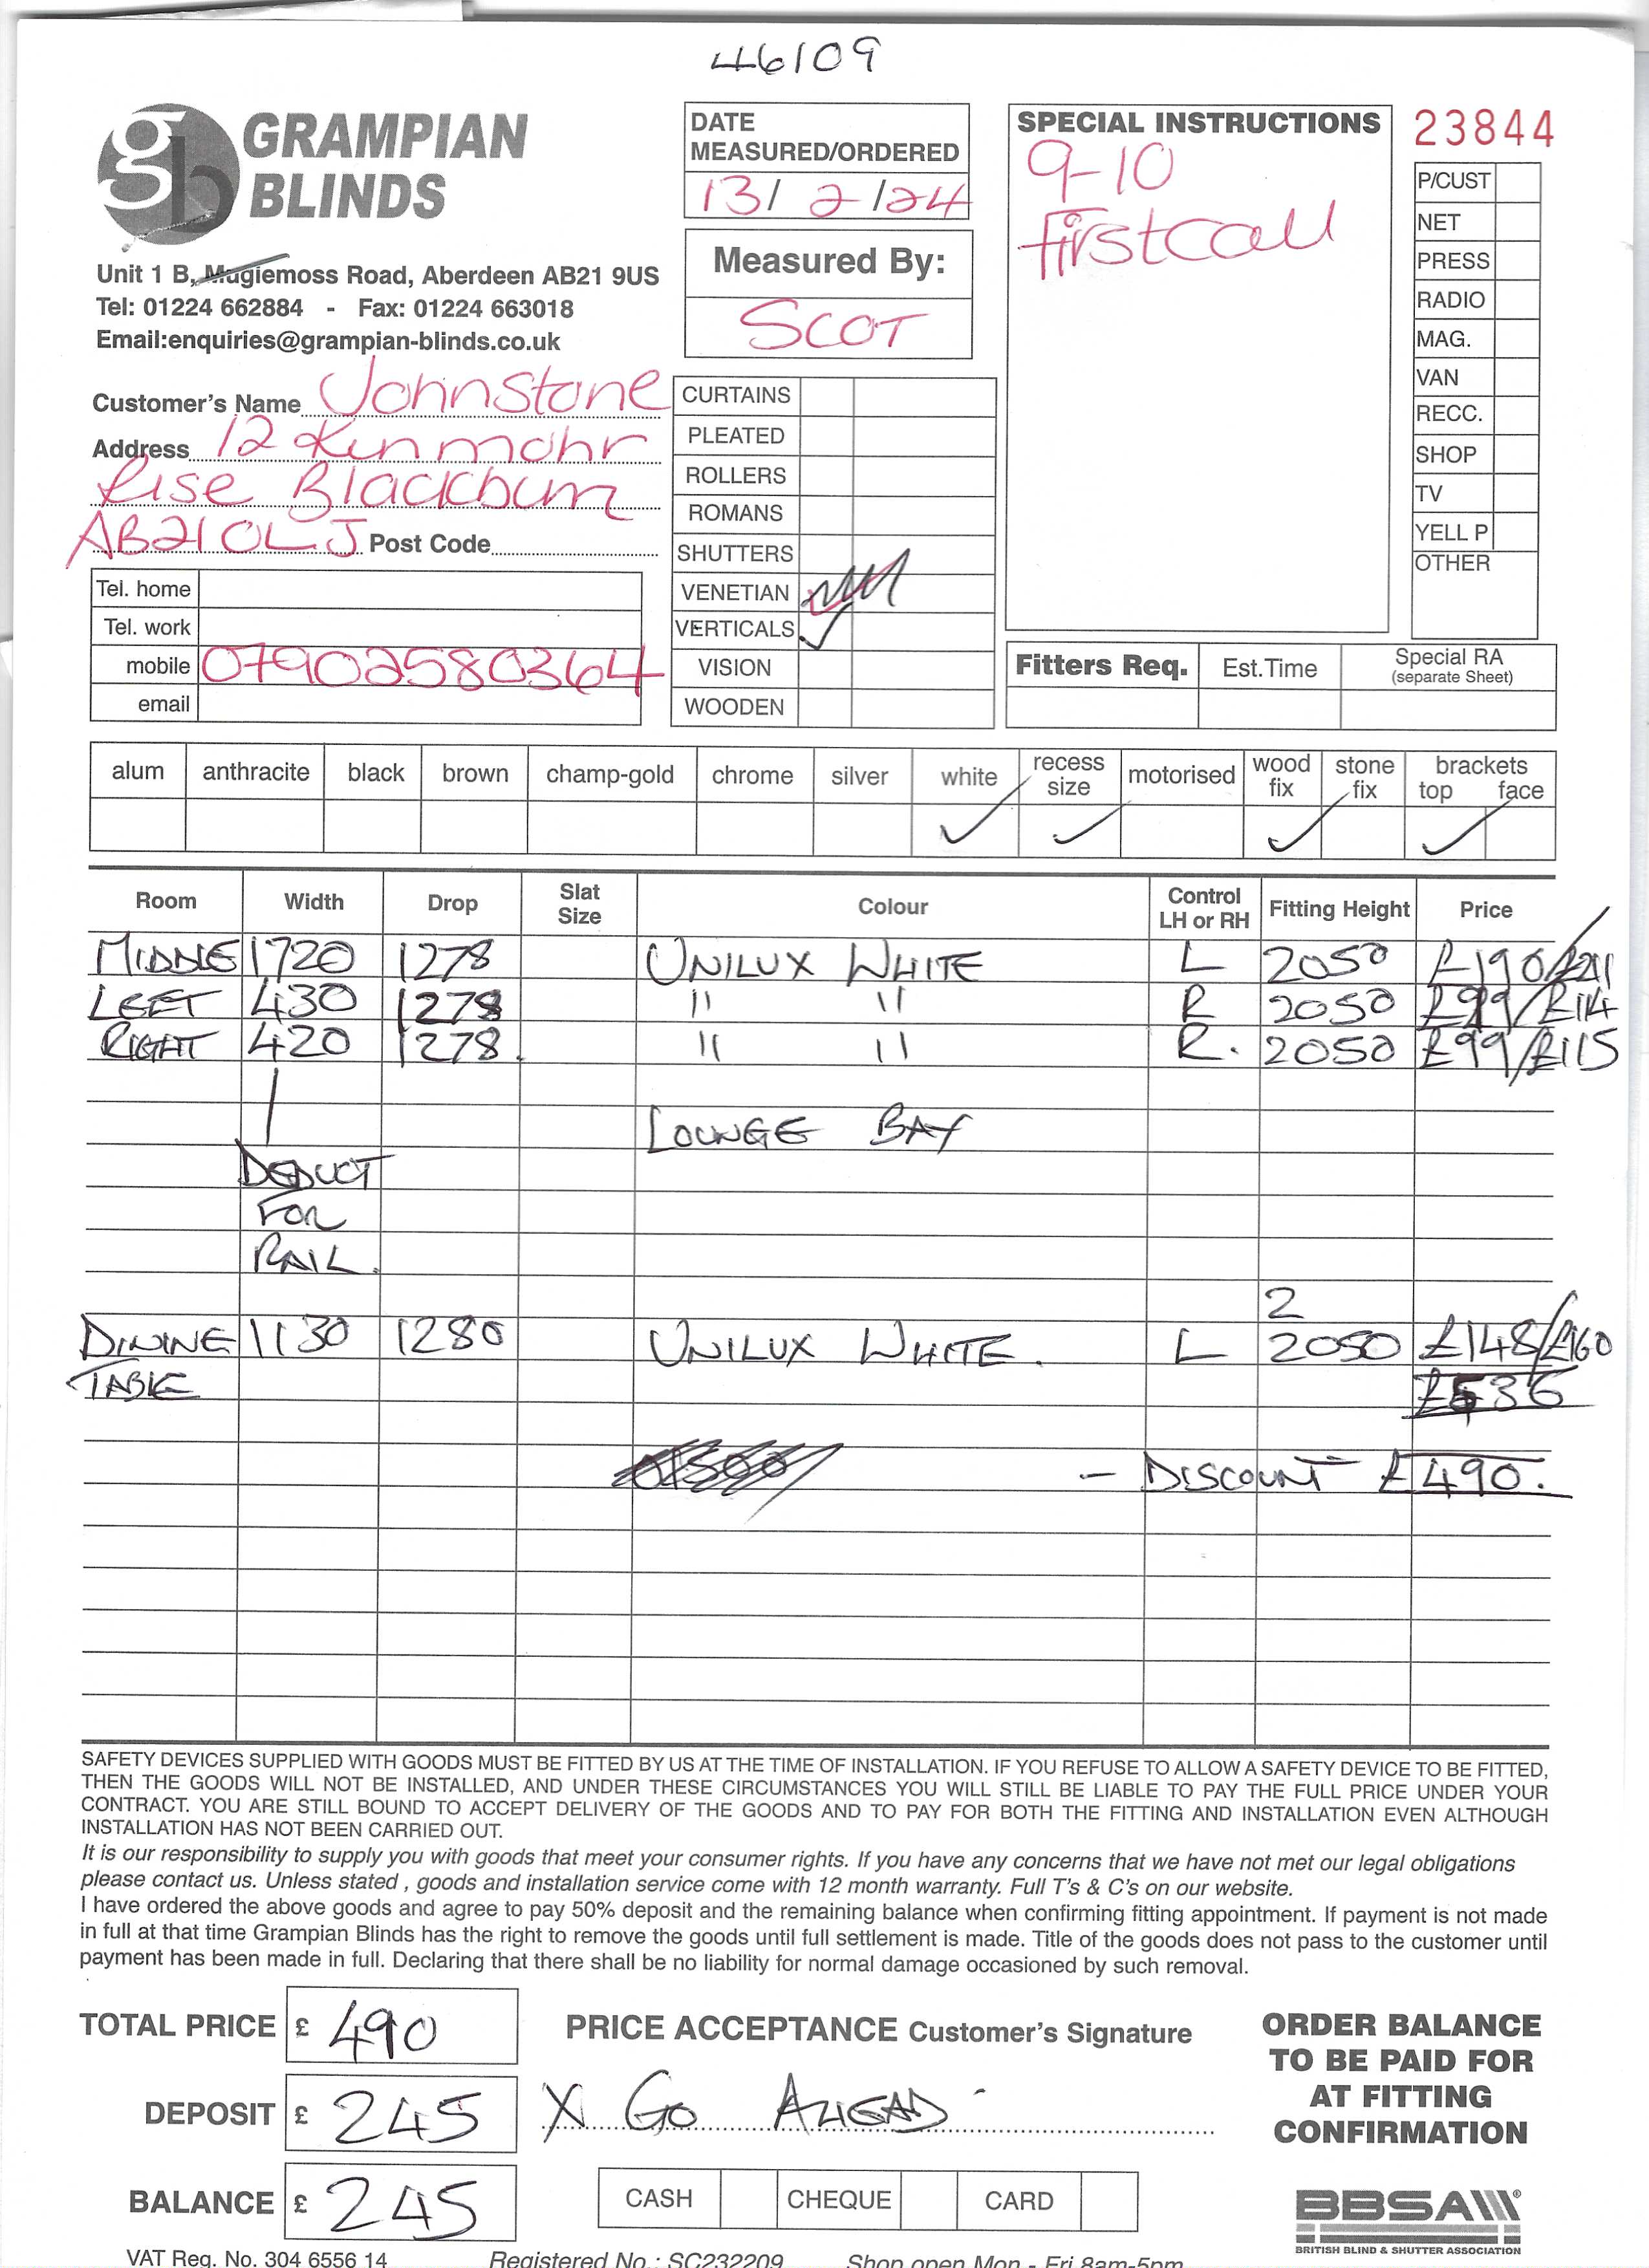 46109
GRAMPIAN
BLINDS
Unit 1 B, Mugiemoss Road, Aberdeen AB21 9US
Tel: 01224 662884 - Fax: 01224 663018
Email:enquiries@grampian-blinds.co.uk
DATE
MEASURED/ORDERED
13/2/24
Measured By:
SCOT
SPECIAL INSTRUCTIONS
9-10
First Call
23844
P/CUST
NET
PRESS
RADIO
MAG.
VAN
RECC.
SHOP
TV
YELL P
OTHER
Customer's Name Johnstone
Address 12 Kinmohr
Rise Blackburn
AB21 0LJ Post Code
Tel. home
Tel. work
mobile 07902580364
email
CURTAINS
PLEATED
ROLLERS
ROMANS
SHUTTERS
VENETIAN
VERTICALS ✓
VISION
WOODEN
Fitters Req. Est.Time Special RA
(separate Sheet)
alum anthracite black brown champ-gold chrome silver white recess size motorised wood fix stone fix brackets top face
✓ ✓ ✓ ✓
Room Width Drop Slat Size Colour Control LH or RH Fitting Height Price
MIDDLE 1720 1278 UNILUX WHITE L 2050 £190/£211
LEFT 430 1278 " " R 2050 £99/£114
RIGHT 420 1278. " " R. 2050 £99/£115
LOUNGE BAY
DEDUCT
FOR
RAIL.
2
DINING 1130 1280 UNILUX WHITE. L 2050 £148/£160
TABLE £536
- DISCOUNT £490.
SAFETY DEVICES SUPPLIED WITH GOODS MUST BE FITTED BY US AT THE TIME OF INSTALLATION. IF YOU REFUSE TO ALLOW A SAFETY DEVICE TO BE FITTED,
THEN THE GOODS WILL NOT BE INSTALLED, AND UNDER THESE CIRCUMSTANCES YOU WILL STILL BE LIABLE TO PAY THE FULL PRICE UNDER YOUR
CONTRACT. YOU ARE STILL BOUND TO ACCEPT DELIVERY OF THE GOODS AND TO PAY FOR BOTH THE FITTING AND INSTALLATION EVEN ALTHOUGH
INSTALLATION HAS NOT BEEN CARRIED OUT.
It is our responsibility to supply you with goods that meet your consumer rights. If you have any concerns that we have not met our legal obligations
please contact us. Unless stated , goods and installation service come with 12 month warranty. Full T's & C's on our website.
I have ordered the above goods and agree to pay 50% deposit and the remaining balance when confirming fitting appointment. If payment is not made
in full at that time Grampian Blinds has the right to remove the goods until full settlement is made. Title of the goods does not pass to the customer until
payment has been made in full. Declaring that there shall be no liability for normal damage occasioned by such removal.
TOTAL PRICE £ 490
DEPOSIT £ 245
BALANCE £ 245
PRICE ACCEPTANCE Customer's Signature
X Go AHEAD
CASH CHEQUE CARD
ORDER BALANCE
TO BE PAID FOR
AT FITTING
CONFIRMATION
BBSA
BRITISH BLIND & SHUTTER ASSOCIATION
VAT Reg. No. 304 6556 14 Registered No.: SC232209 Shop open Mon - Fri 8am-5pm